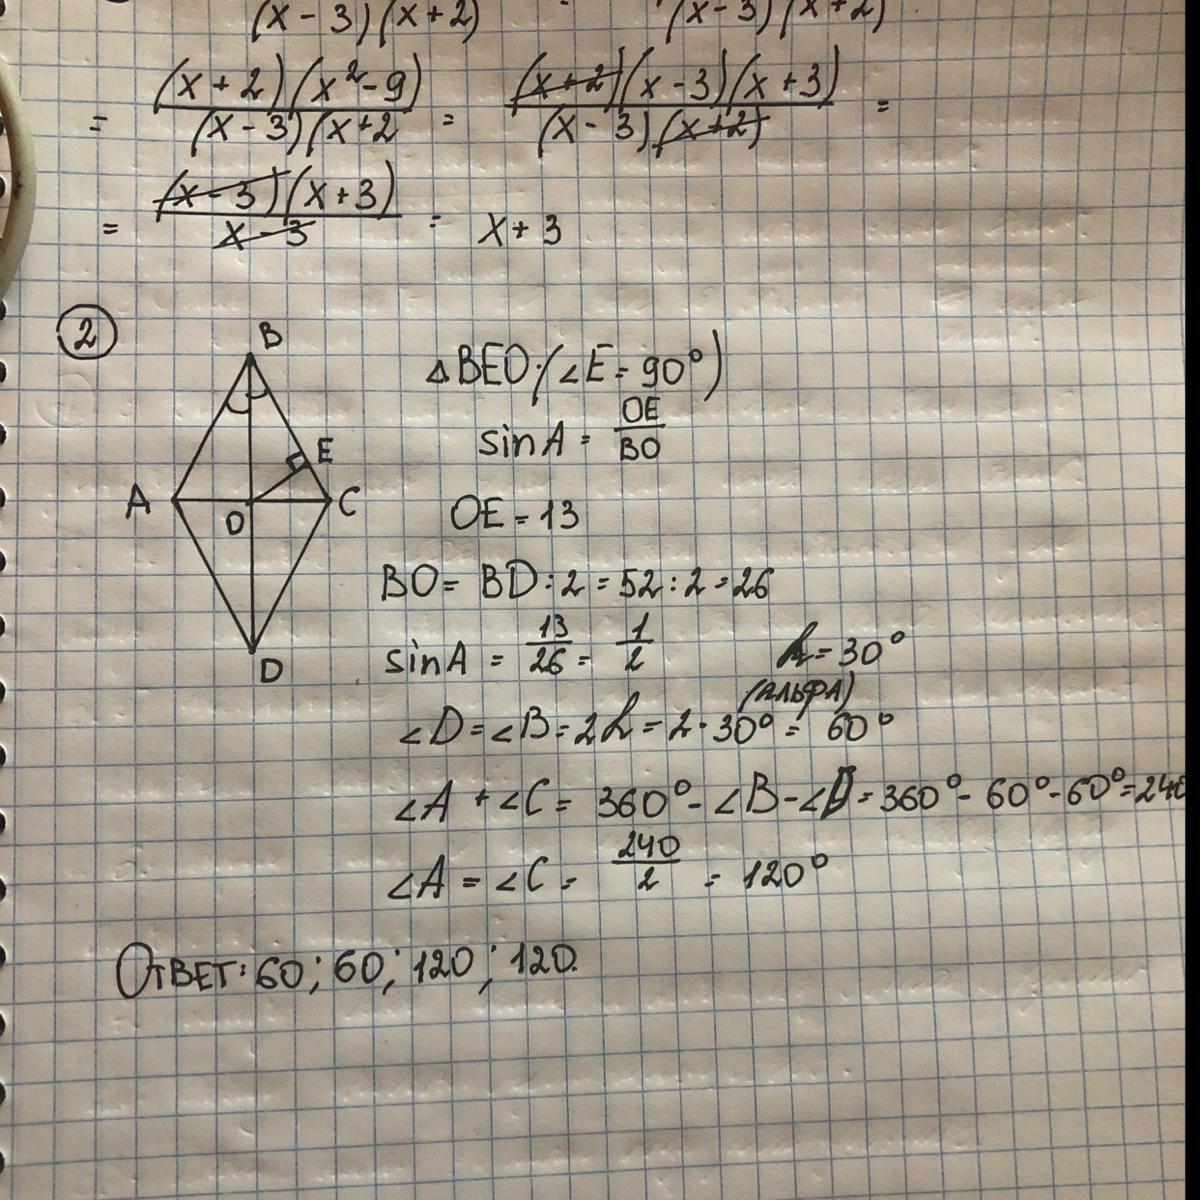 (x-3)(x+2) (x-3)(x+2)
= (x+2)(x²-9) / (x-3)(x+2 = (x+2)(x-3)(x+3) / (x-3)(x+2) =
= (x-3)(x+3) / x-3 = x+3
2
B
E
A
O
C
D
△BEO (∠E = 90°)
sinA = OE / BO
OE = 13
BO = BD : 2 = 52 : 2 = 26
sinA = 13/26 = 1/2 = 30°
(АЛЬФА)
∠D = ∠B = 2L = 2 · 30° = 60°
∠A + ∠C = 360° - ∠B - ∠D = 360° - 60° - 60° = 240
∠A = ∠C = 240/2 = 120°
ОТВЕТ: 60; 60; 120; 120.